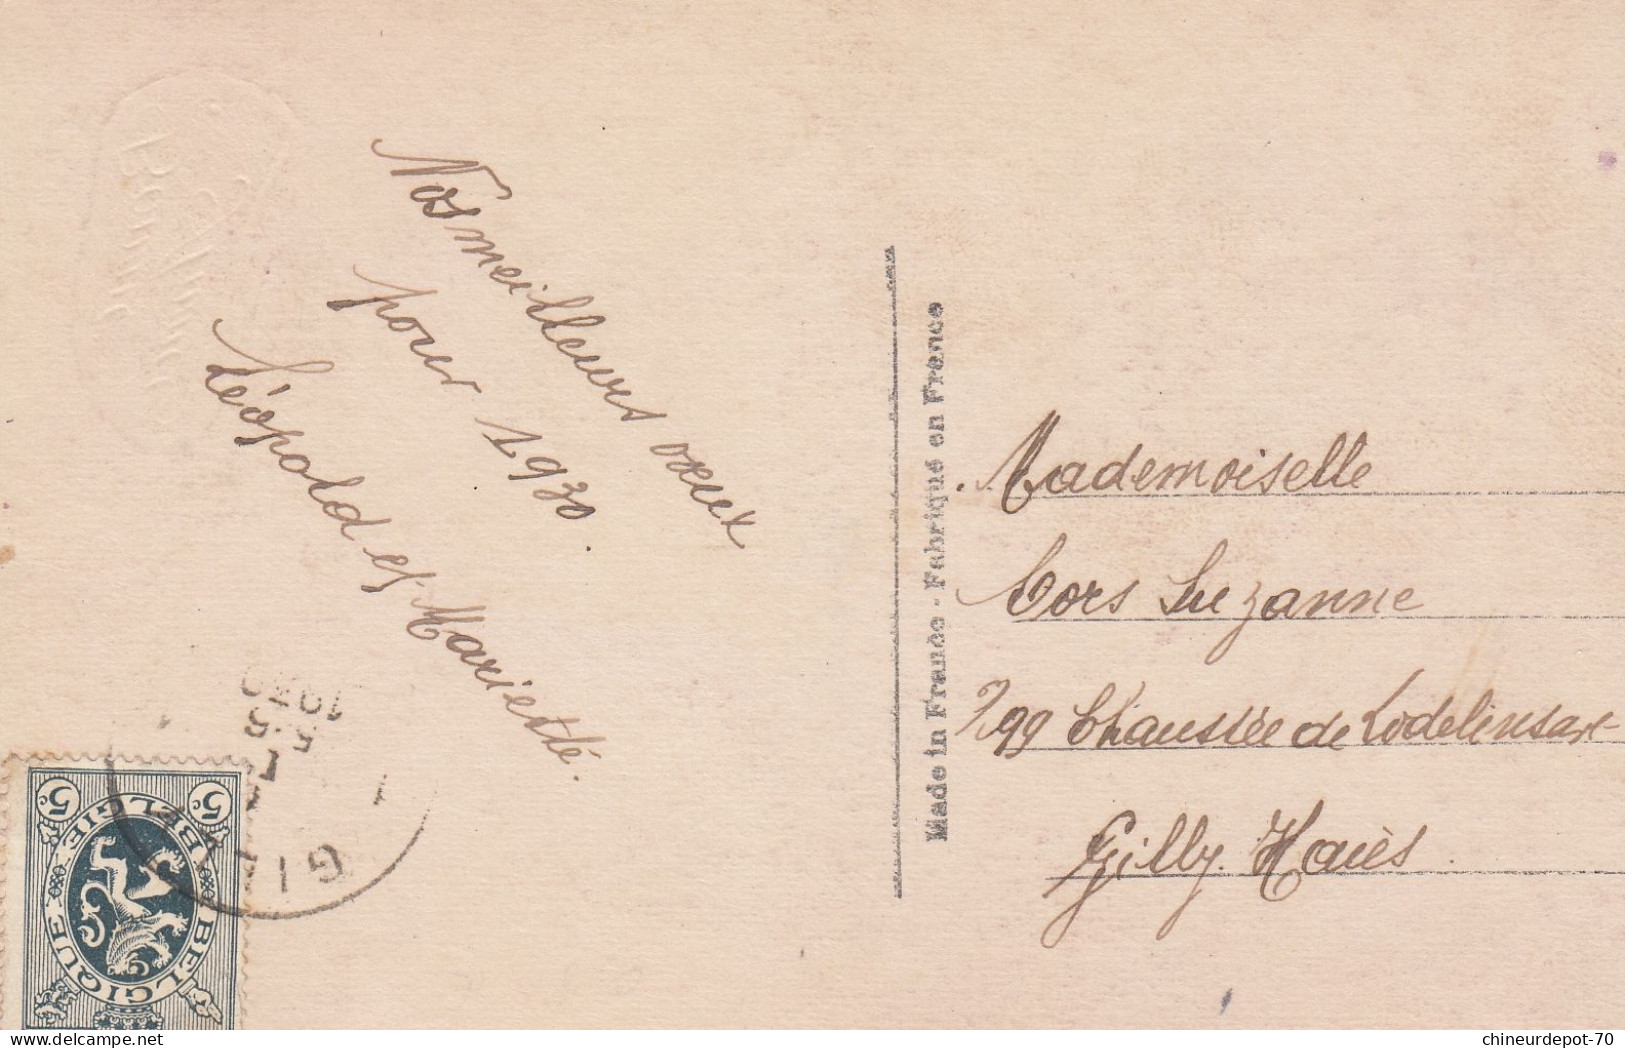 Nos meilleurs vœux
pour 1930.
Léopold et Mariette.
Made in France - Fabriqué en France
Mademoiselle
Cors Suzanne
299 Chaussée de Lodelinsart
Gilly. Haies.
5c 5c
BELGIE - BELGIQUE
BELGIQUE - BELGIE
1930
chineurdepot-70